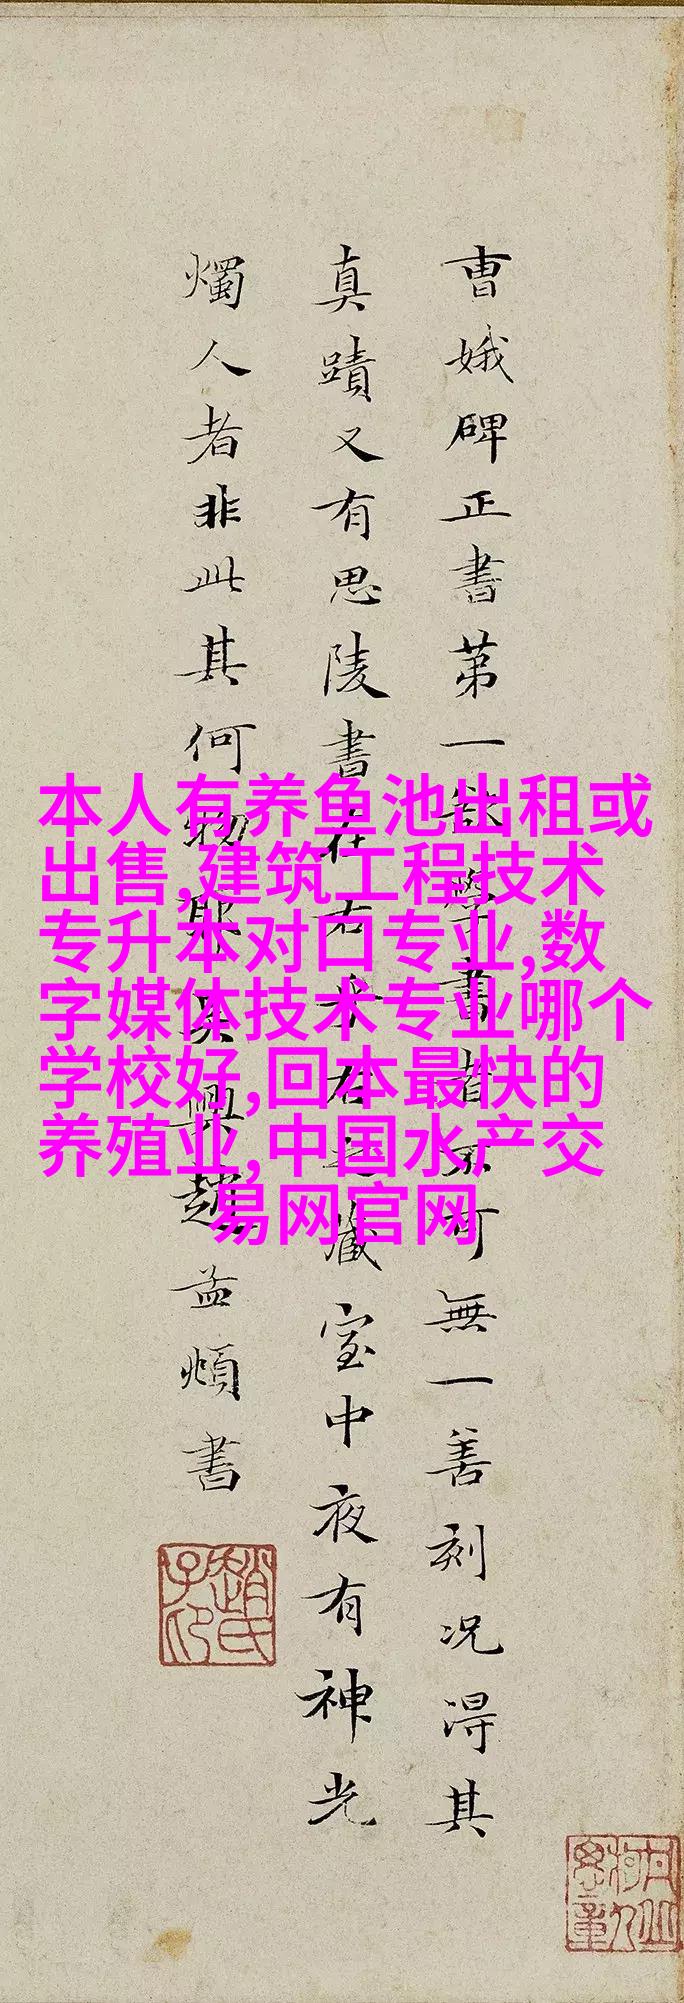 曹娥碑正書第一欲學書者不可無一善刻況得其
真蹟又有思陵書在右乎右之藏室中夜有神光
燭人者非此其何物耶吳興趙孟頫書
本人有养鱼池出租或
出售,建筑工程技术
专升本对口专业,数
字媒体技术专业哪个
学校好,回本最快的
养殖业,中国水产交
易网官网